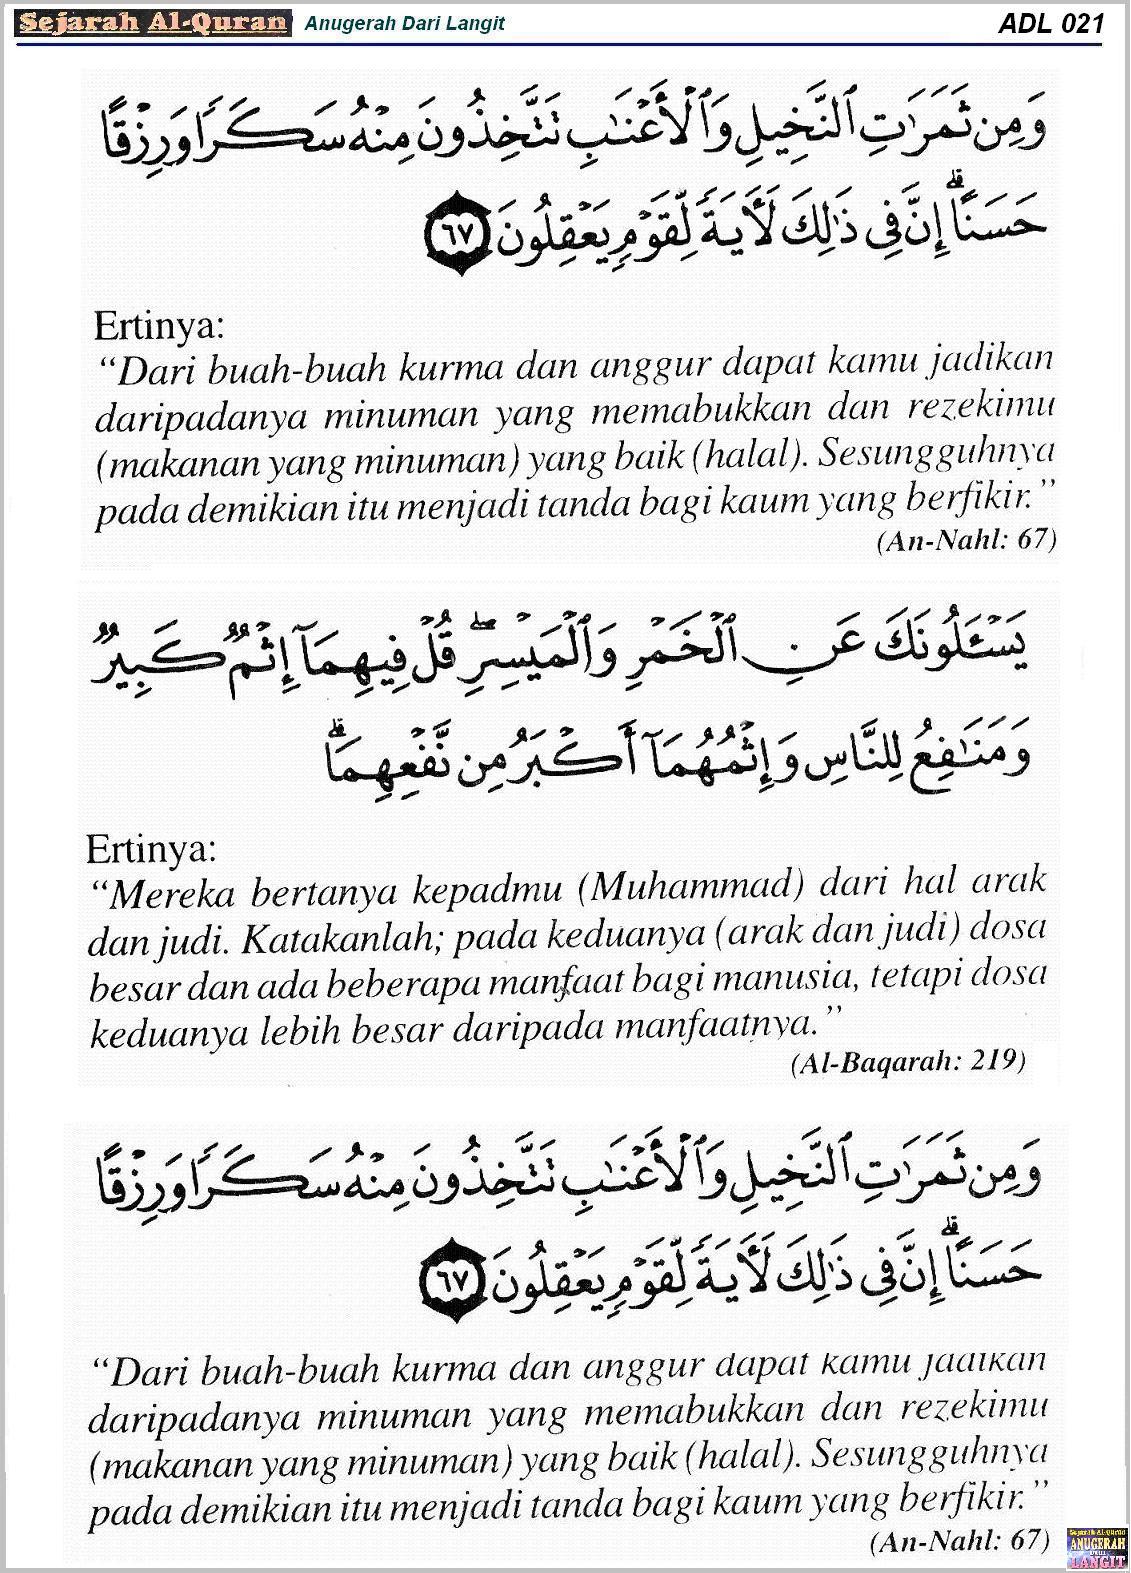 Sejarah Al-Quran Anugerah Dari Langit ADL 021
وَمِن ثَمَرَٰتِ ٱلنَّخِيلِ وَٱلْأَعْنَٰبِ تَتَّخِذُونَ مِنْهُ سَكَرًا وَرِزْقًا
حَسَنًا ۗ إِنَّ فِى ذَٰلِكَ لَـَٔايَةً لِّقَوْمٍ يَعْقِلُونَ ٦٧
Ertinya:
“Dari buah-buah kurma dan anggur dapat kamu jadikan
daripadanya minuman yang memabukkan dan rezekimu
(makanan yang minuman) yang baik (halal). Sesungguhnya
pada demikian itu menjadi tanda bagi kaum yang berfikir.”
(An-Nahl: 67)
يَسْـَٔلُونَكَ عَنِ ٱلْخَمْرِ وَٱلْمَيْسِرِ ۖ قُلْ فِيهِمَآ إِثْمٌ كَبِيرٌ
وَمَنَٰفِعُ لِلنَّاسِ وَإِثْمُهُمَآ أَكْبَرُ مِن نَّفْعِهِمَا ۗ
Ertinya:
“Mereka bertanya kepadmu (Muhammad) dari hal arak
dan judi. Katakanlah; pada keduanya (arak dan judi) dosa
besar dan ada beberapa manfaat bagi manusia, tetapi dosa
keduanya lebih besar daripada manfaatnya.”
(Al-Baqarah: 219)
وَمِن ثَمَرَٰتِ ٱلنَّخِيلِ وَٱلْأَعْنَٰبِ تَتَّخِذُونَ مِنْهُ سَكَرًا وَرِزْقًا
حَسَنًا ۗ إِنَّ فِى ذَٰلِكَ لَـَٔايَةً لِّقَوْمٍ يَعْقِلُونَ ٦٧
“Dari buah-buah kurma dan anggur dapat kamu jadikan
daripadanya minuman yang memabukkan dan rezekimu
(makanan yang minuman) yang baik (halal). Sesungguhnya
pada demikian itu menjadi tanda bagi kaum yang berfikir.”
(An-Nahl: 67)
Sejarah Al-Quran
ANUGERAH
DARI
LANGIT